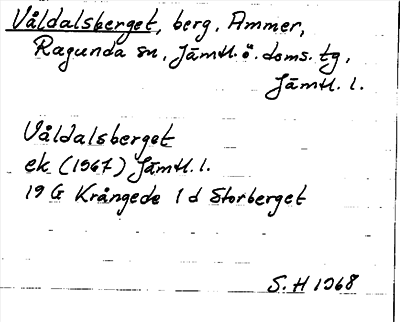 Våldalsberget, berg. Ammer,
Ragunda sn, Jämtl. ö. doms. tg,
Jämtl. l.
Våldalsberget
ek (1967) Jämtl. l.
19 G Krångede 1 d Storberget
S. H 1968